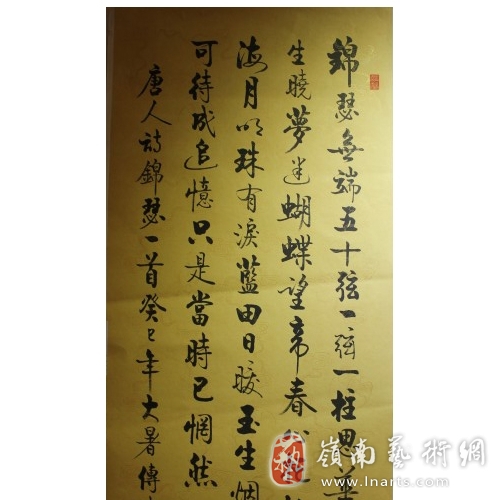 錦瑟無端五十弦一弦一柱思華
生曉夢迷蝴蝶望帝春心託杜
海月明珠有淚藍田日暖玉生烟
可待成追憶只是當時已惘然
唐人詩錦瑟一首癸巳年大暑傳
嶺南藝術網
www.lnarts.com